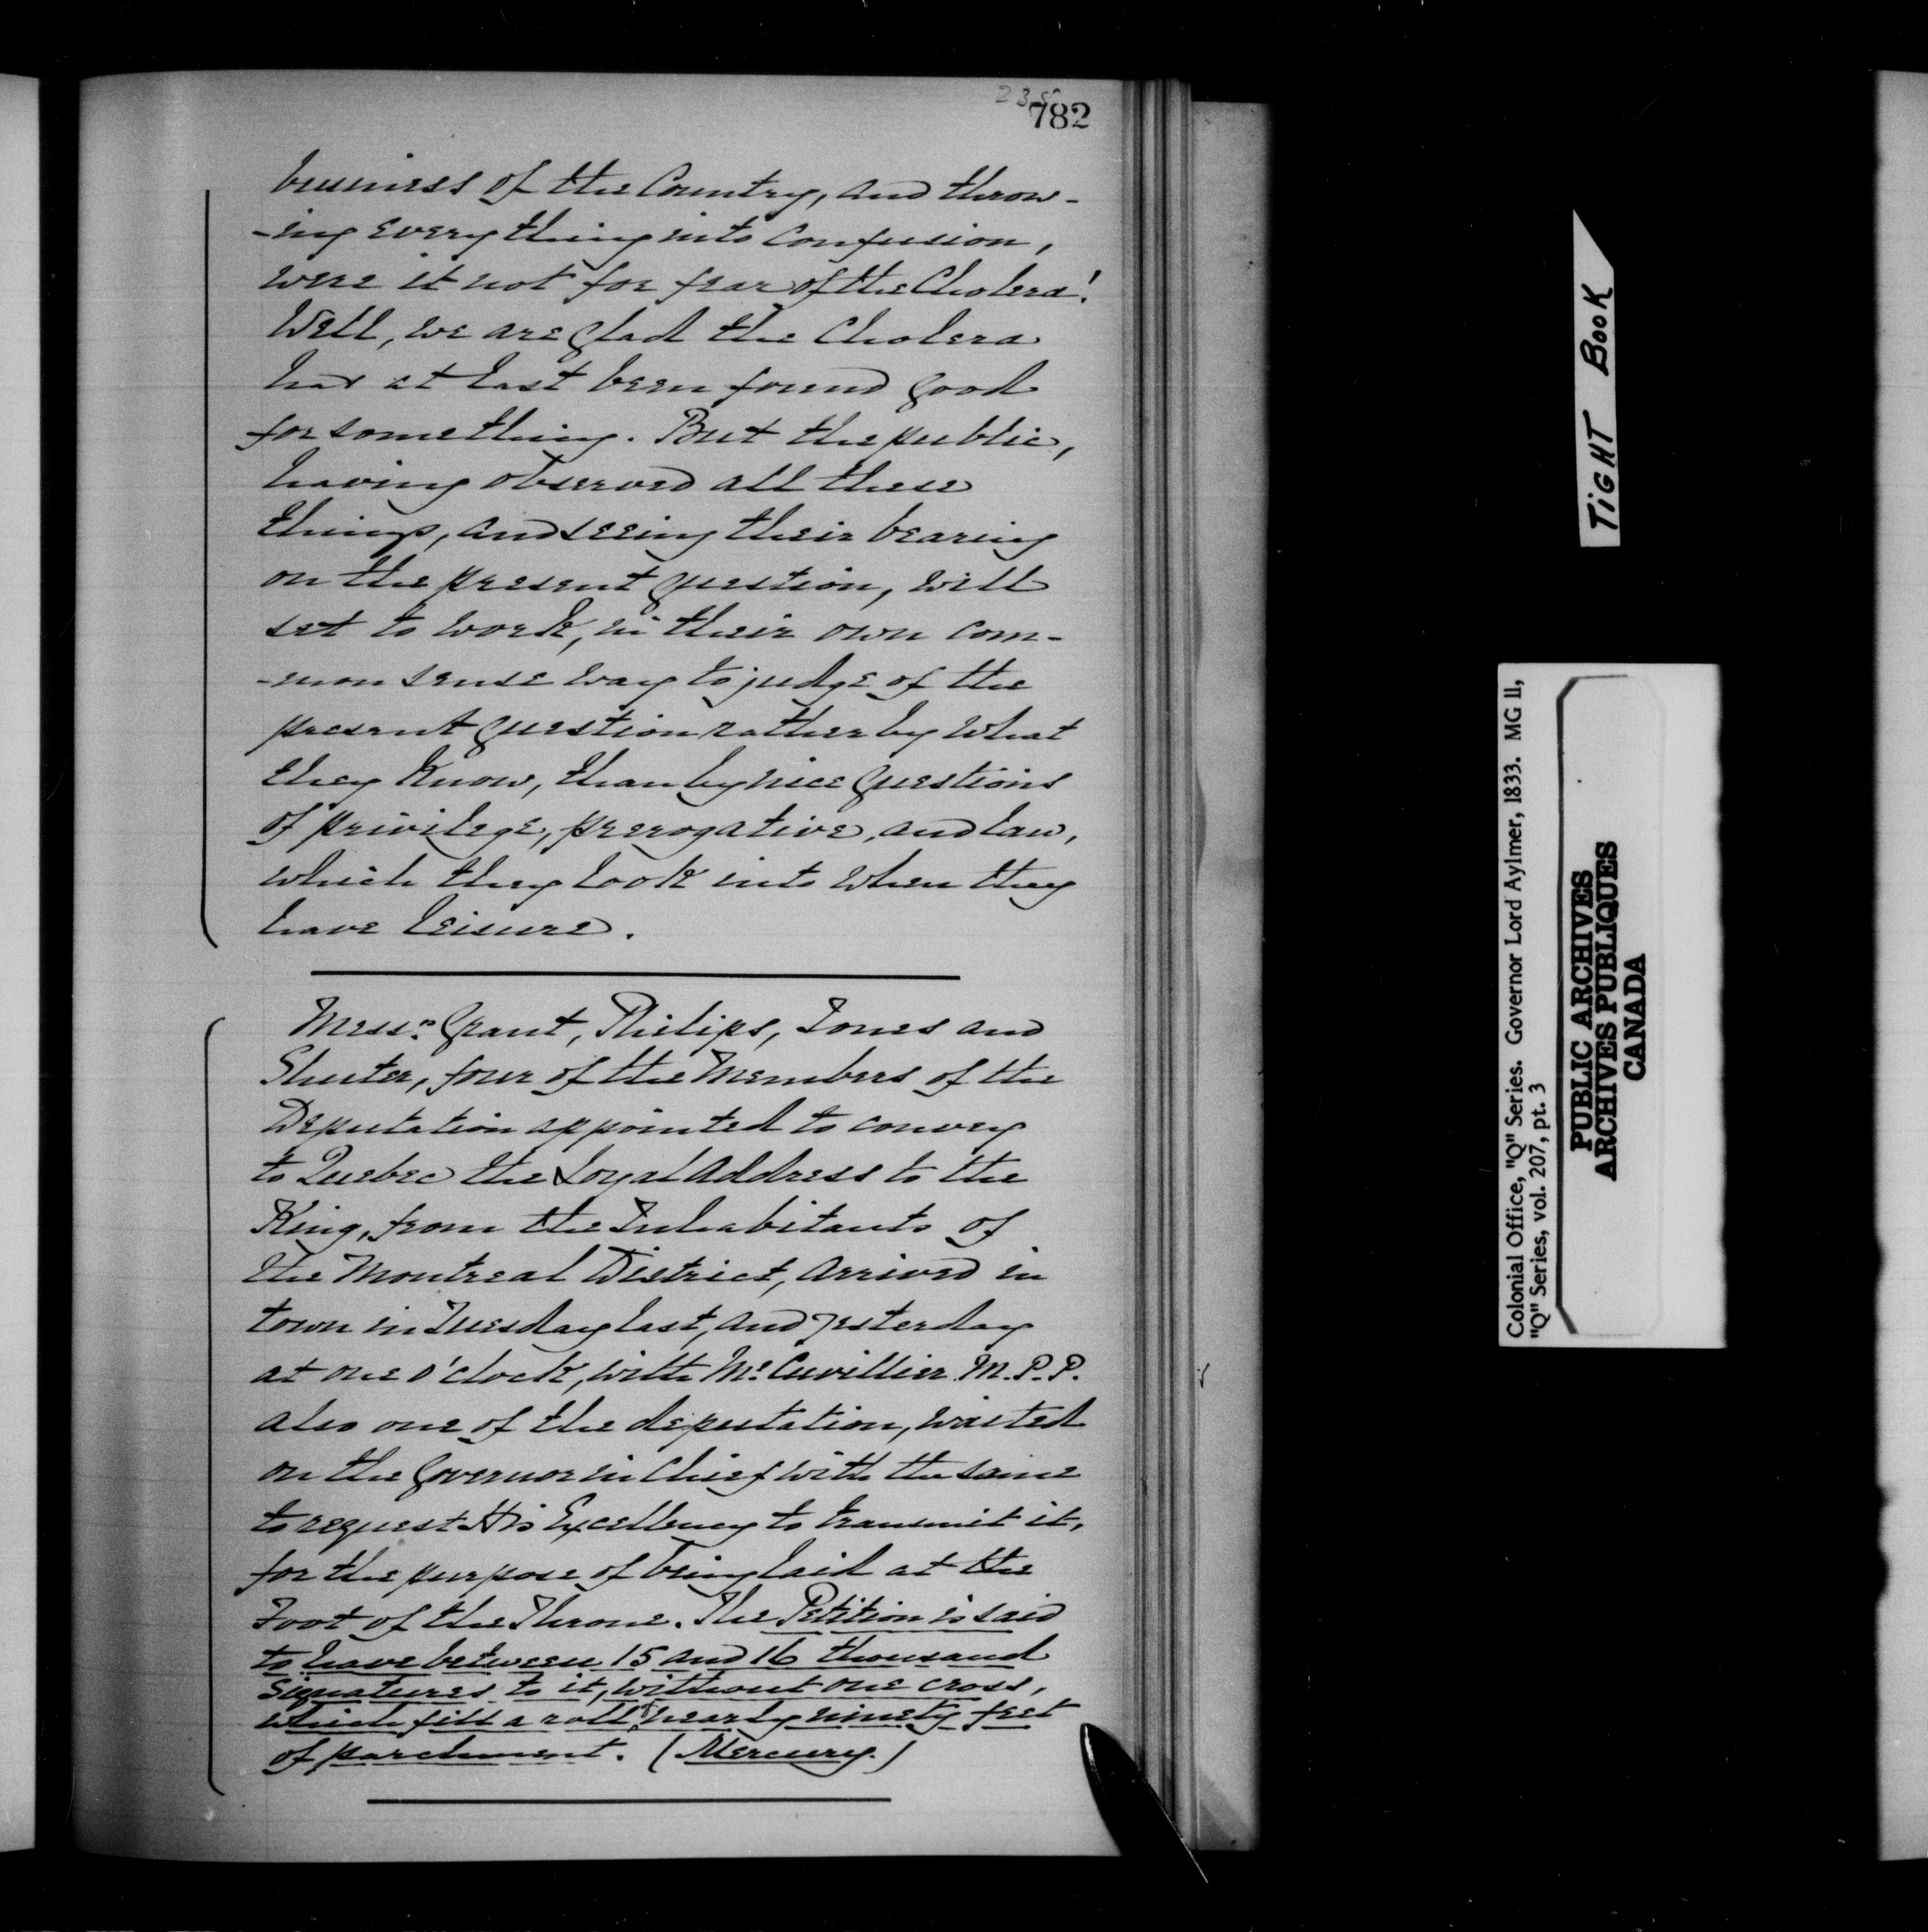 782
business of the Country, and throw-
-ing everything into Confusion,
were it not for fear of the Cholera!
Well, we are glad the Cholera
has at last been found good
for something. But the public,
having observed all these
things, and seeing their bearing
on the present question, will
set to work, in their own com-
-mon sense way to judge of the
present question rather by what
they Know, than by nice questions
of privilege, prerogative, and law,
which they look into when they
have leisure.
Messrs. Grant, Philips, Jones and
Shuter, four of the Members of the
Deputation appointed to convey
to Quebec the Loyal Address to the
King, from the Inhabitants of
the Montreal District, arrived in
town on Tuesday last, and yesterday
at one o'clock, with Mr. Cuvillier M.P.P.
also one of the deputation, waited
on the Governor in Chief with the same
to request His Excellency to transmit it,
for the purpose of being laid at the
Foot of the Throne. The Petition is said
to have between 15 and 16 thousand
signatures to it, without one cross,
which fill a roll nearly ninety feet
of parchment. (Mercury.)
TIGHT BOOK
Colonial Office, "Q" Series. Governor Lord Aylmer, 1833. MG 11,
"Q" Series, vol. 207, pt. 3
PUBLIC ARCHIVES
ARCHIVES PUBLIQUES
CANADA